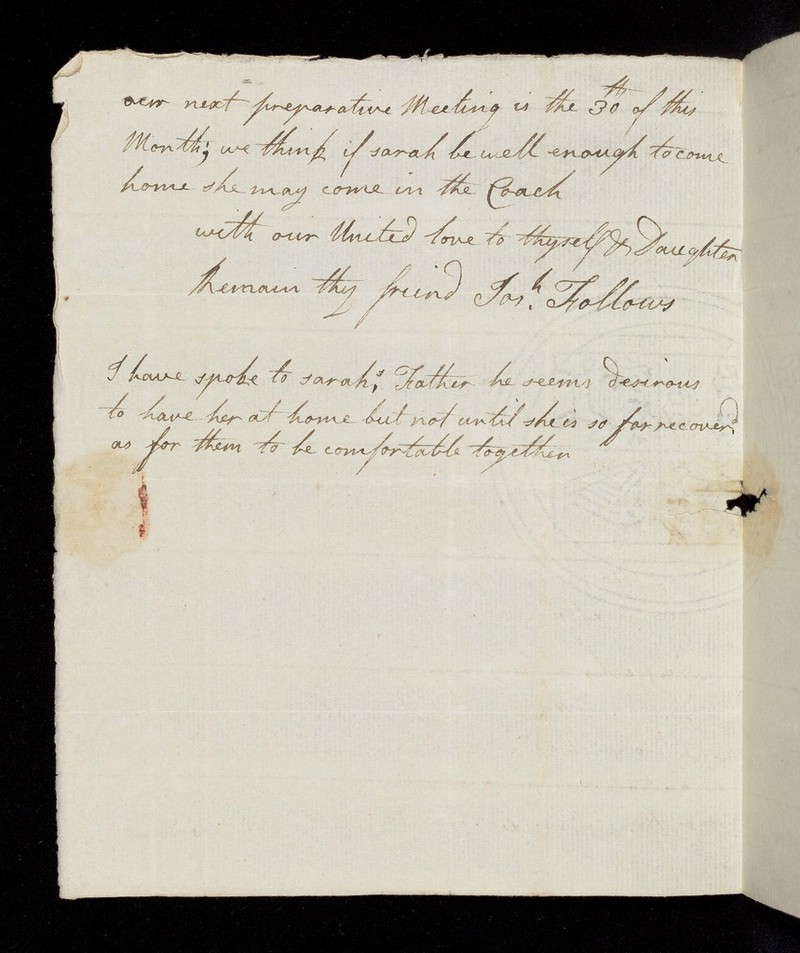 our next preparative Meeting is the 30th of this
Month; we think if sarah be well enough to come
home she may come in the Coach
with our United love to thyself & Daughter
Remain thy friend Josh. Follows
I have spoke to sarah,s Father he seems desirous
to have her at home but not until she is so far recover'd
as for them to be comfortable together